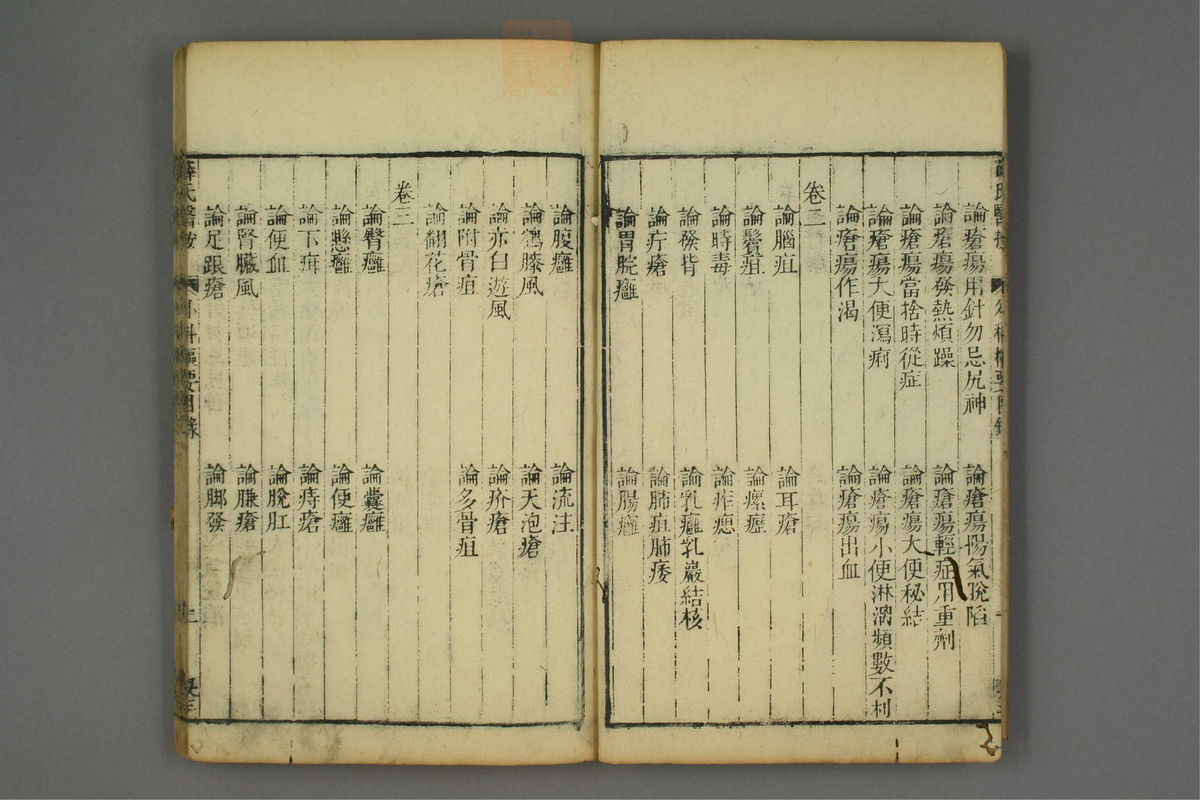 論瘡瘍用針勿忌尻神
論瘡瘍陽氣脫陷
論瘡瘍發熱煩躁
論瘡瘍輕症用重劑
論瘡瘍當捨時從症
論瘡瘍大便秘結
論瘡瘍大便瀉痢
論瘡瘍小便淋漓頻數不利
論瘡瘍作渴
論瘡瘍出血
卷二
論腦疽
論耳瘡
論鬢疽
論瘰癧
論時毒
論痄腮
論發背
論乳癰乳巖結核
論疔瘡
論肺疽肺痿
論胃脘癰
論腸癰
論腹癰
論流注
論鶴膝風
論天泡瘡
論赤白遊風
論疥瘡
論附骨疽
論多骨疽
論翻花瘡
卷三
論臀癰
論囊癰
論懸癰
論便癰
論下疳
論痔瘡
論便血
論脫肛
論腎臟風
論臁瘡
論足跟瘡
論脚發
薛氏醫按
外科樞要目錄